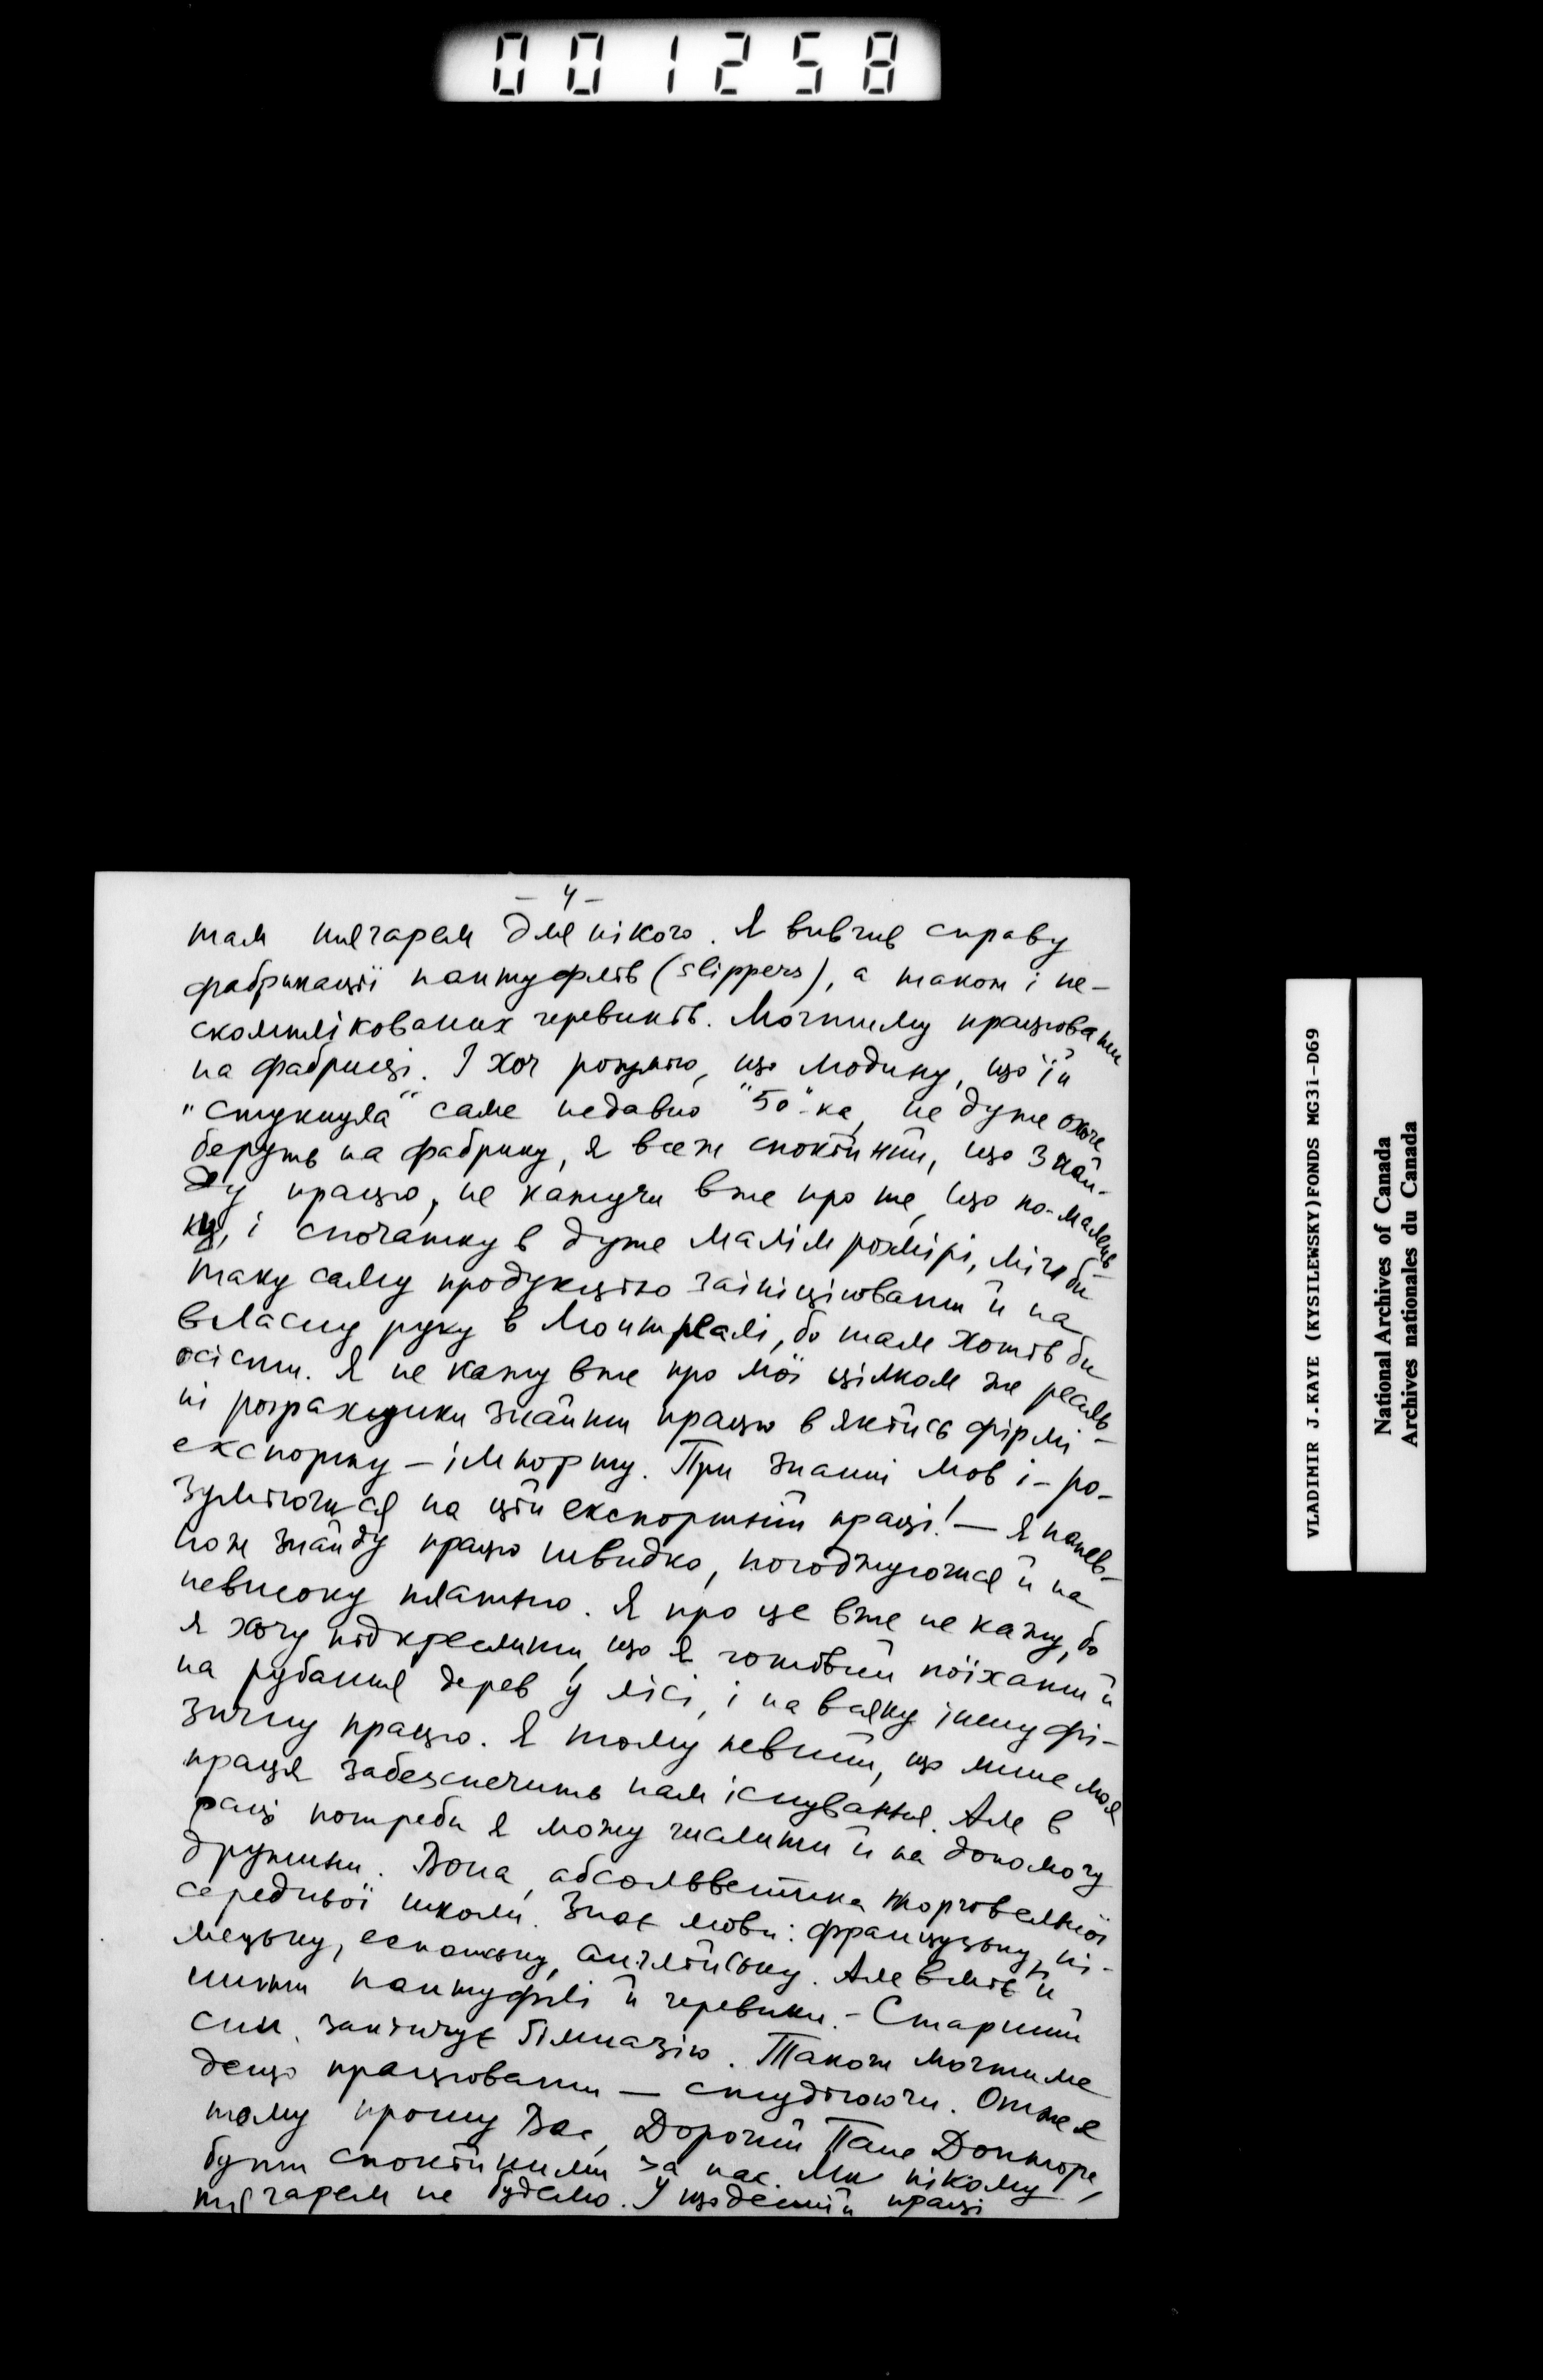 001258
- 4 -
там тягарем для нікого. Я вивчив справу
фабрикації пантуфлів (slippers), а також і не-
скомплікованих черевиків. Могтиму працювати
на фабриці. І хоч розумію, що людину, що їй
"стукнула" саме недавно "50"-ка, не дуже охоче
беруть на фабрику, я всеж спокійний, що знай-
ду працю, не кажучи вже про те, що по-малень-
ку, і спочатку в дуже малім розмірі, міг би
таку саму продукцію заініціювати й на
власну руку в Монтреалі, бо там хотів би
осісти. Я не кажу вже про мої цілком же реаль-
ні розрахунки знайти працю в якійсь фірмі
експорту - імпорту. При знанні мов і - ро-
зуміючися на цій експортній праці! - я напев-
но ж знайду працю швидко, погоджуючися й на
невисоку платню. Я про це вже не кажу, бо
я хочу підкреслити, що я готовий поїхати й
на рубання дерев у лісі, і на всяку іншу фі-
зичну працю. Я тому певний, що лише моя
праця забезпечить нам існування. Але в
разі потреби я можу числити й на допомогу
дружини. Вона, абсольвентка торговельної
середньої школи. Знає мови: французьку, ні-
мецьку, еспанську, англійську. Але вміє й
шити пантуфлі й черевики. - Старший
син закінчує гімназію. Також могтиме
дещо працювати - студіюючи. Отже я
тому прошу Вас, Дорогий Пане Докторе,
бути спокійними за нас. Ми нікому
тягарем не будемо. У щоденній праці
VLADIMIR J.KAYE (KYSILEWSKY)FONDS MG31-D69
National Archives of Canada
Archives nationales du Canada